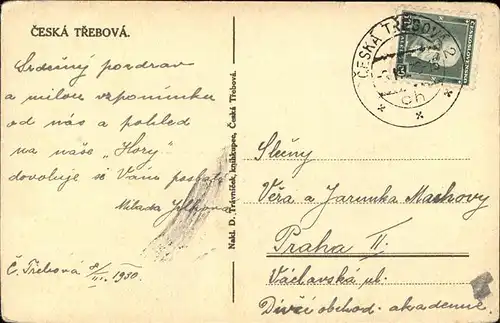 ČESKÁ TŘEBOVÁ.
Srdečný pozdrav
a milou vzpomínku
od nás a pohled
na naše „Hory"
dovoluje si Vám poslati
Milada
Č. Třebová 8/III. 1930.
Nakl. D. Trávníček, knihkupec, Česká Třebová.
ČESKÁ TŘEBOVÁ 2
ch
ČESKOSLOVENSKO
Slečny
Věra a Jarunka Machovy
Praha II.
Václavská ul.
Dívčí obchod. akademie.